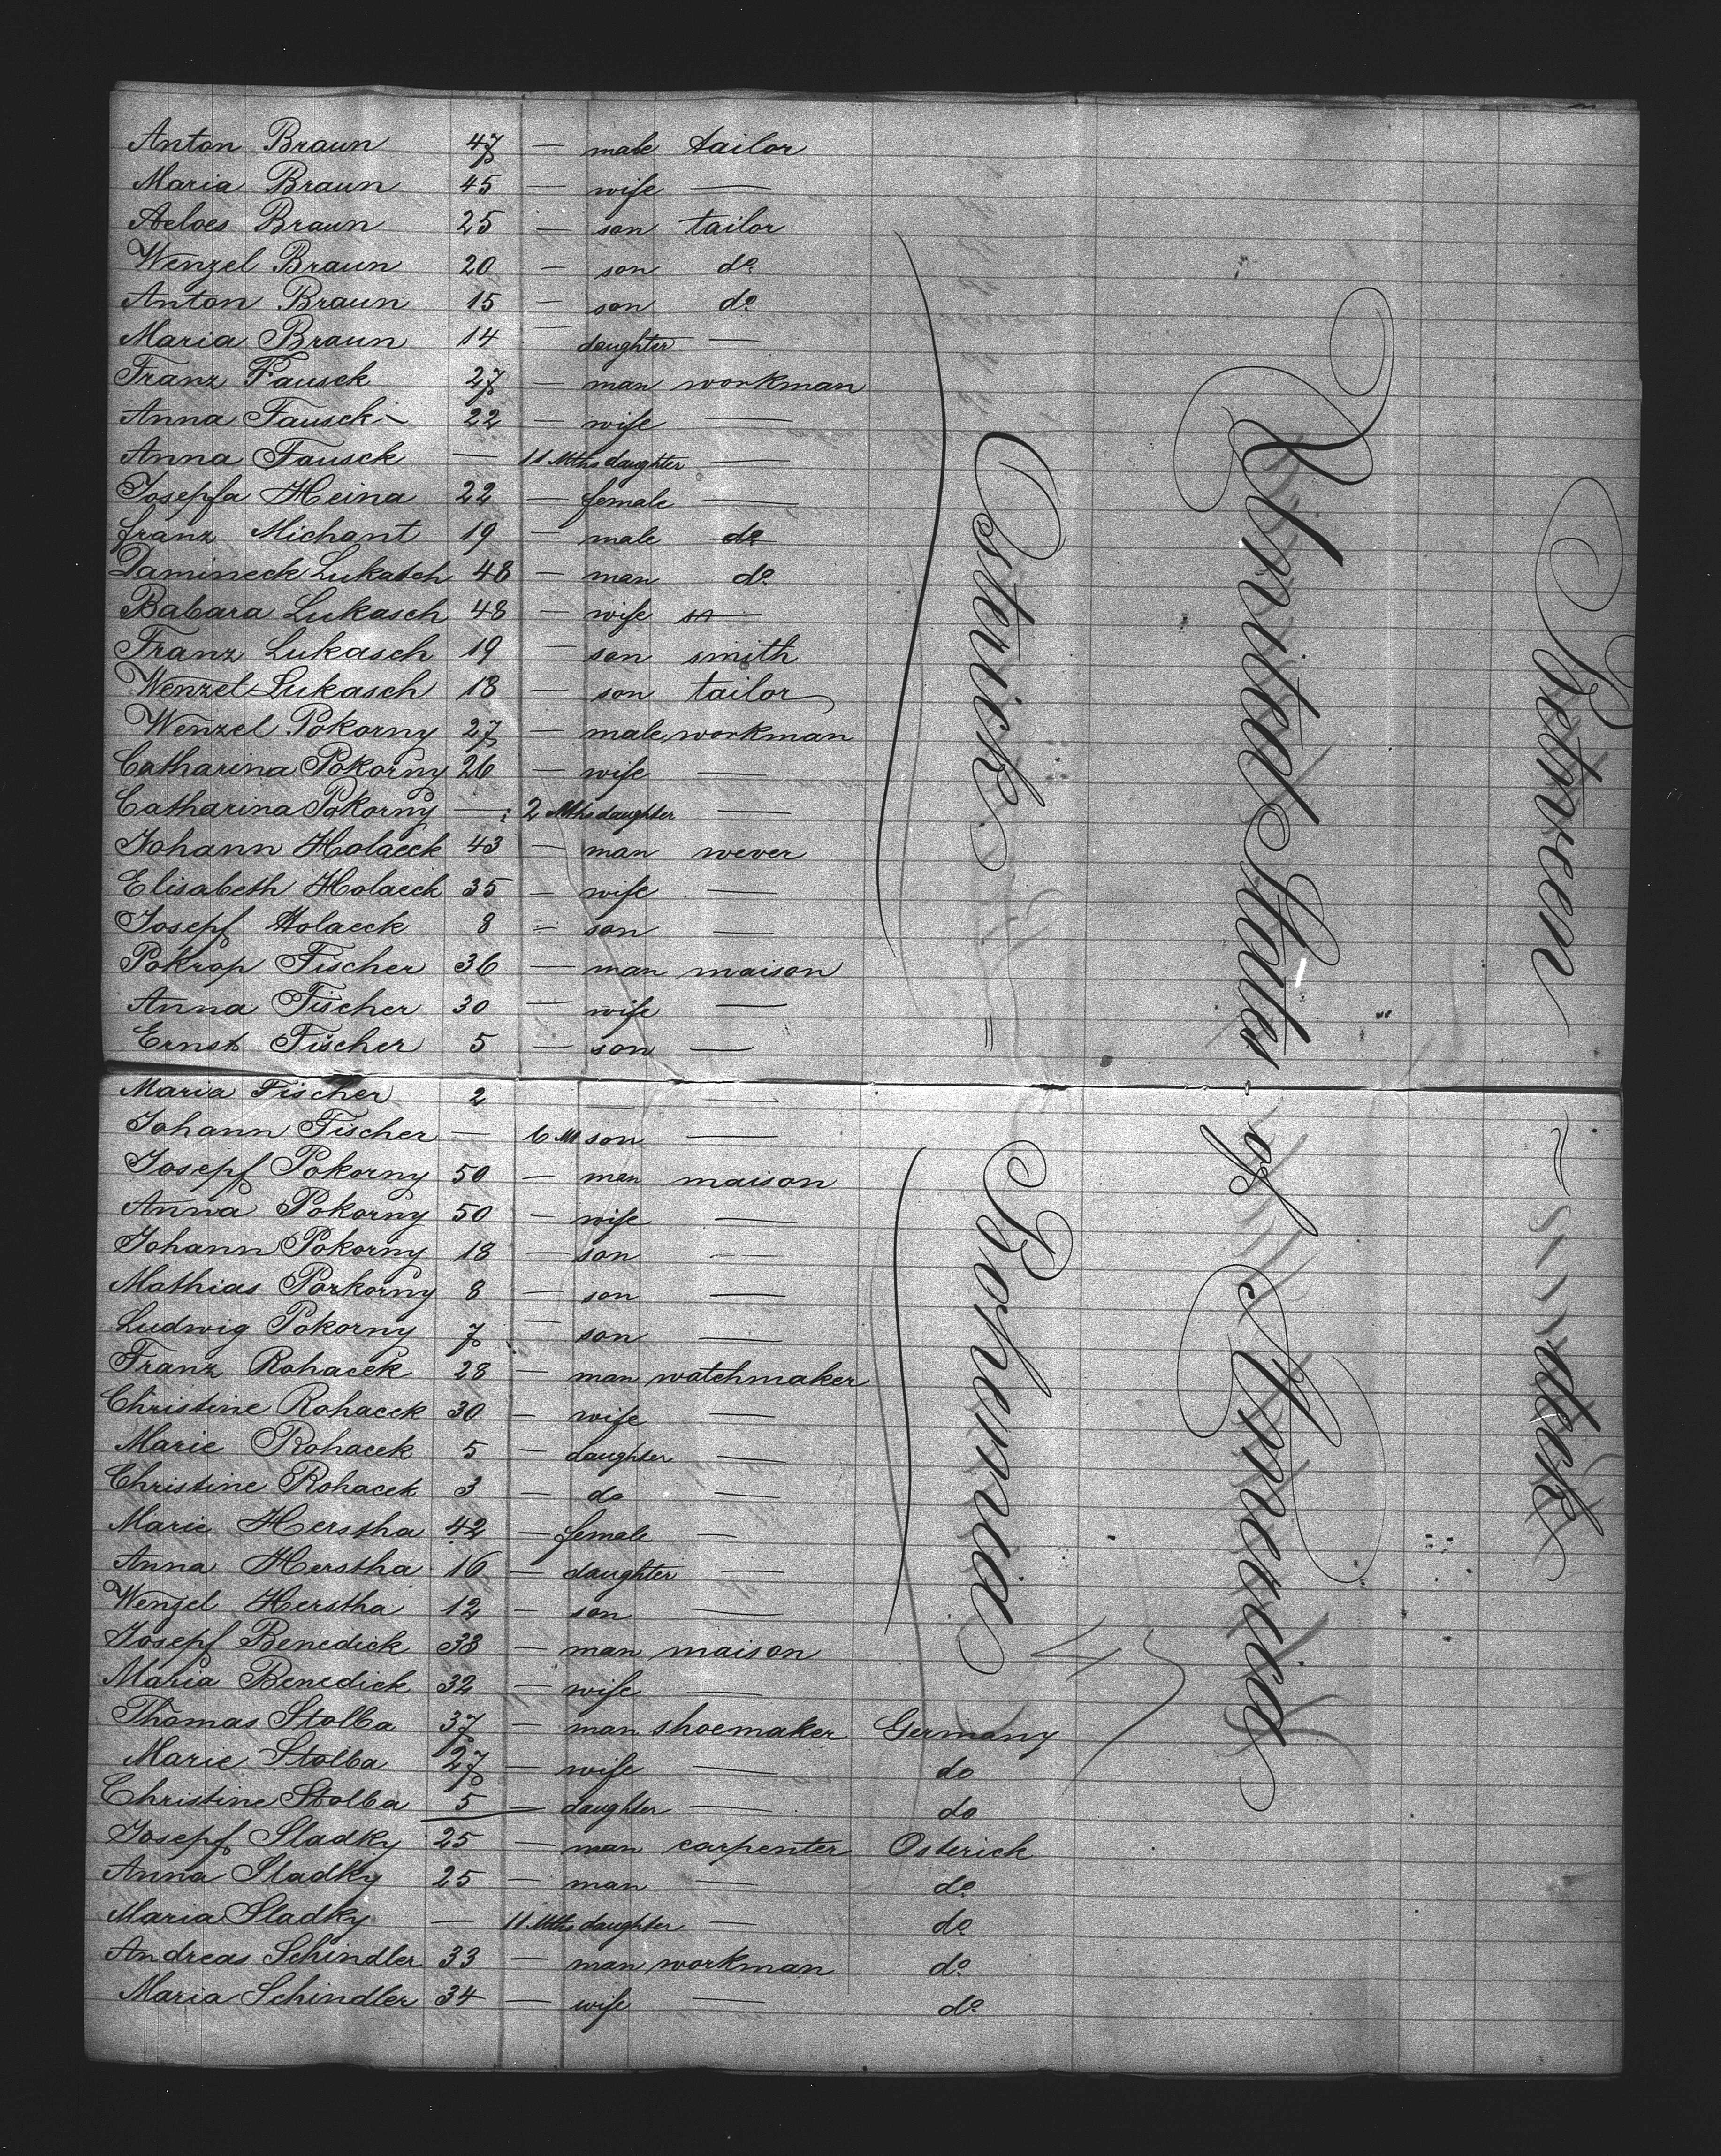 Anton Braun 47 — male tailor
Maria Braun 45 — wife —
Aeloes Braun 25 — son tailor
Wenzel Braun 20 — son do
Anton Braun 15 — son do
Maria Braun 14 — daughter —
Franz Fausek 27 — man workman
Anna Fausek 22 — wife —
Anna Fausek — 11 Mths daughter —
Josepfa Heina 22 — female —
franz Michant 19 — male do
Damineck Lukasch 48 — man do
Babara Lukasch 48 — wife —
Franz Lukasch 19 — son smith
Wenzel Lukasch 18 — son tailor
Wenzel Pokorny 27 — male workman
Catharina Pokorny 26 — wife —
Catharina Pokorny — 2 Mths daughter —
Johann Holaeck 43 — man wever
Elisabeth Holaeck 35 — wife —
Josepf Holaeck 8 — son —
Pokrop Fischer 36 — man maison
Anna Fischer 30 — wife —
Ernst Fischer 5 — son —
Maria Fischer 2 — —
Johann Fischer — 6 M son —
Josepf Pokorny 50 — man maison
Anna Pokorny 50 — wife —
Johann Pokorny 18 — son —
Mathias Porkorny 8 — son —
Ludwig Pokorny 7 — son —
Franz Rohacek 28 — man watchmaker
Christine Rohacek 30 — wife —
Marie Rohacek 5 — daughter —
Christine Rohacek 3 — do —
Marie Herstha 42 — female —
Anna Herstha 16 — daughter —
Wenzel Herstha 12 — son —
Josepf Benedick 33 — man maison
Maria Benedick 32 — wife —
Thomas Stolba 37 — man shoemaker Germany
Marie Stolba 27 — wife — do
Christine Stolba 5 — daughter — do
Josepf Sladky 25 — man carpenter Osterich
Anna Sladky 25 — man — do
Maria Sladky — 11 Mths daughter — do
Andreas Schindler 33 — man workman do
Maria Schindler 34 — wife — do
Ostreich = Bohemia
United States of America
Between — deck